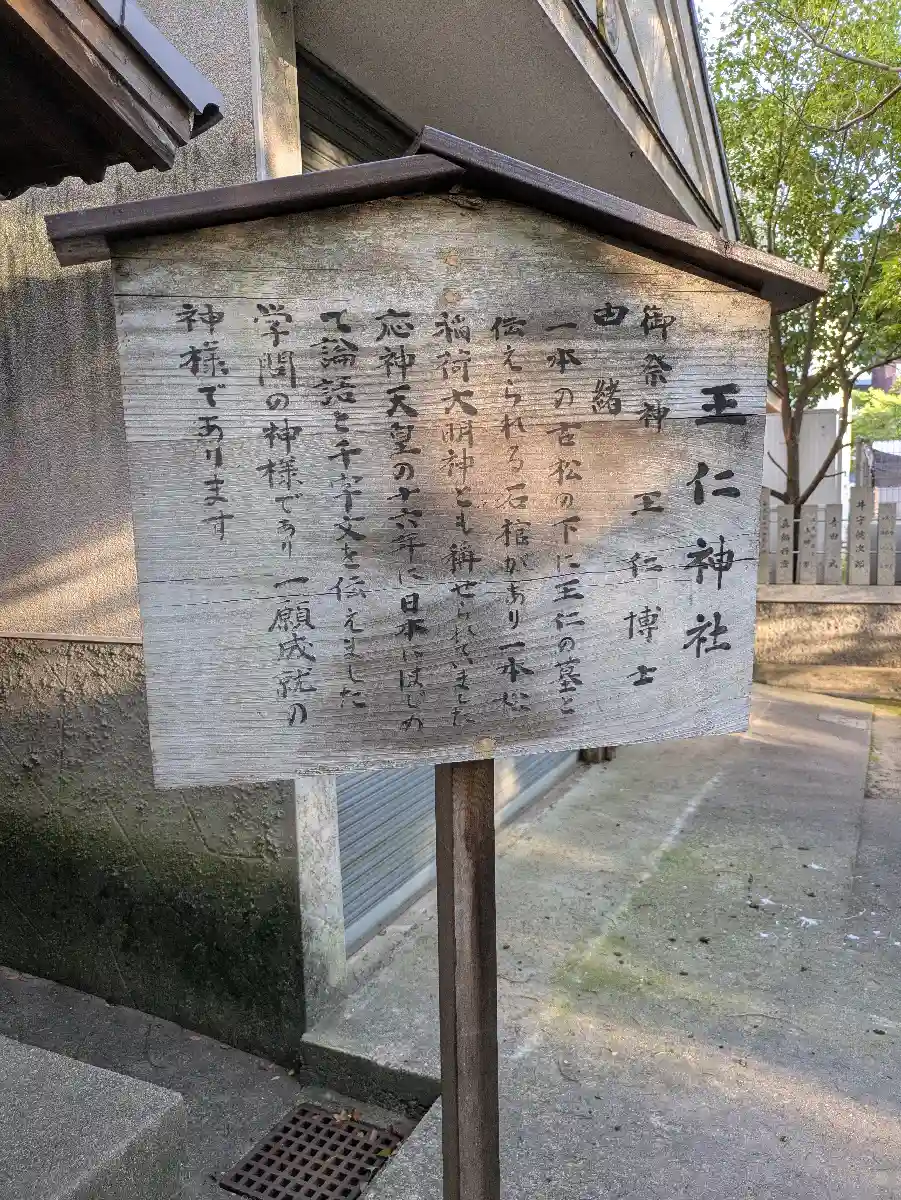 王仁神社
御祭神 王仁博士
由緒
一本の古松の下に王仁の墓と
伝えられる石棺があり一本松
稲荷大明神とも称せられていました
応神天皇の十六年に日本にはじめ
て論語と千字文を伝えました
学問の神様であり一願成就の
神様であります